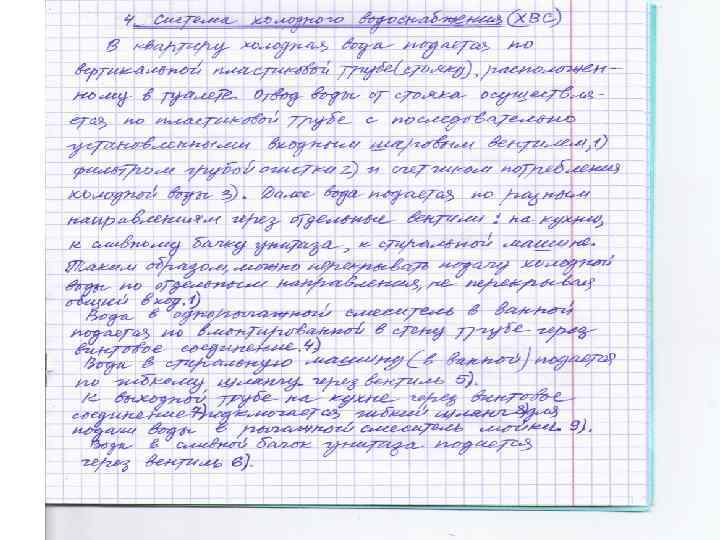 4. Система холодного водоснабжения (ХВС)
В квартиру холодная вода подается по
вертикальной пластиковой трубе (стояку), расположен-
ному в туалете. Отвод воды от стояка осуществля-
ется по пластиковой трубе с последовательно
установленными входным шаровым вентилем, 1)
фильтром грубой очистки 2) и счетчиком потребления
холодной воды 3). Далее вода подается по разным
направлениям через отдельные вентили: на кухню,
к сливному бачку унитаза, к стиральной машине.
Таким образом, можно перекрывать подачу холодной
воды по отдельным направления, не перекрывая
общий вход. 1)
Вода в однорычажной смеситель в ванной
подается по вмонтированной в стену трубе через
винтовое соединение. 4)
Вода в стиральную машину (в ванной) подается
по гибкому шлангу через вентиль 5).
К выходной трубе на кухне через винтовое
соединение 7) подключается гибкий шланг 8) для
подачи воды в рычажной смеситель мойки. 9).
Вода в сливной бачок унитаза подается
через вентиль 6).